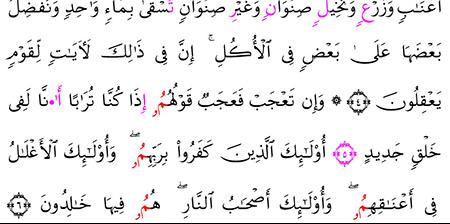 أَعْنَٰبٖ وَزَرْعٖ وَنَخِيلٖ صِنْوَانٖ وَغَيْرِ صِنْوَانٖ تُسْقَىٰ بِمَآءٖ وَٰحِدٖ وَنُفَضِّلُ
بَعْضَهَا عَلَىٰ بَعْضٖ فِي ٱلْأُكُلِۚ إِنَّ فِي ذَٰلِكَ لَأٓيَٰتٖ لِّقَوْمٖ
يَعْقِلُونَ ﴿٤﴾ ۞ وَإِن تَعْجَبْ فَعَجَبٞ قَوْلُهُمُۥ إِذَا كُنَّا تُرَٰبًا أَ•نَّا لَفِي
خَلْقٖ جَدِيدٍ ﴿٥﴾ أُوْلَٰٓئِكَ ٱلَّذِينَ كَفَرُوا۟ بِرَبِّهِمُۥۖ وَأُوْلَٰٓئِكَ ٱلْأَغْلَٰلُ
فِيٓ أَعْنَاقِهِمُۥۖ وَأُوْلَٰٓئِكَ أَصْحَٰبُ ٱلنَّارِۖ هُمُۥ فِيهَا خَٰلِدُونَ ﴿٦﴾